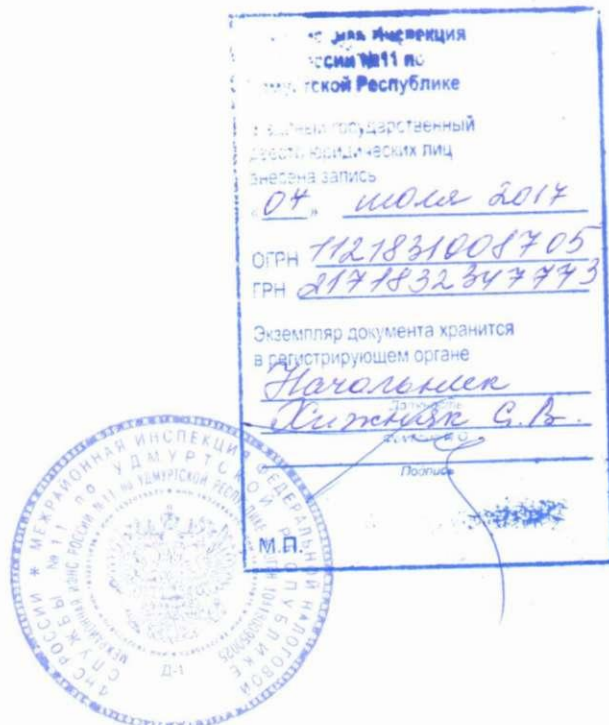 Инспекция
России №11 по
Удмуртской Республике
государственный
реестр юридических лиц
внесена запись
"04" июля 2017
ОГРН 1121831008705
ГРН 2171832347773
Экземпляр документа хранится
в регистрирующем органе
Начальник
Должность
Хижняк С.В.
Подпись
М.П.
ФНС РОССИИ * МЕЖРАЙОННАЯ ИНСПЕКЦИЯ ФЕДЕРАЛЬНОЙ НАЛОГОВОЙ
СЛУЖБЫ № 11 ПО УДМУРТСКОЙ РЕСПУБЛИКЕ
МЕЖРАЙОННАЯ ИФНС РОССИИ N 11 ПО УДМУРТСКОЙ РЕСПУБЛИКЕ
Д-1